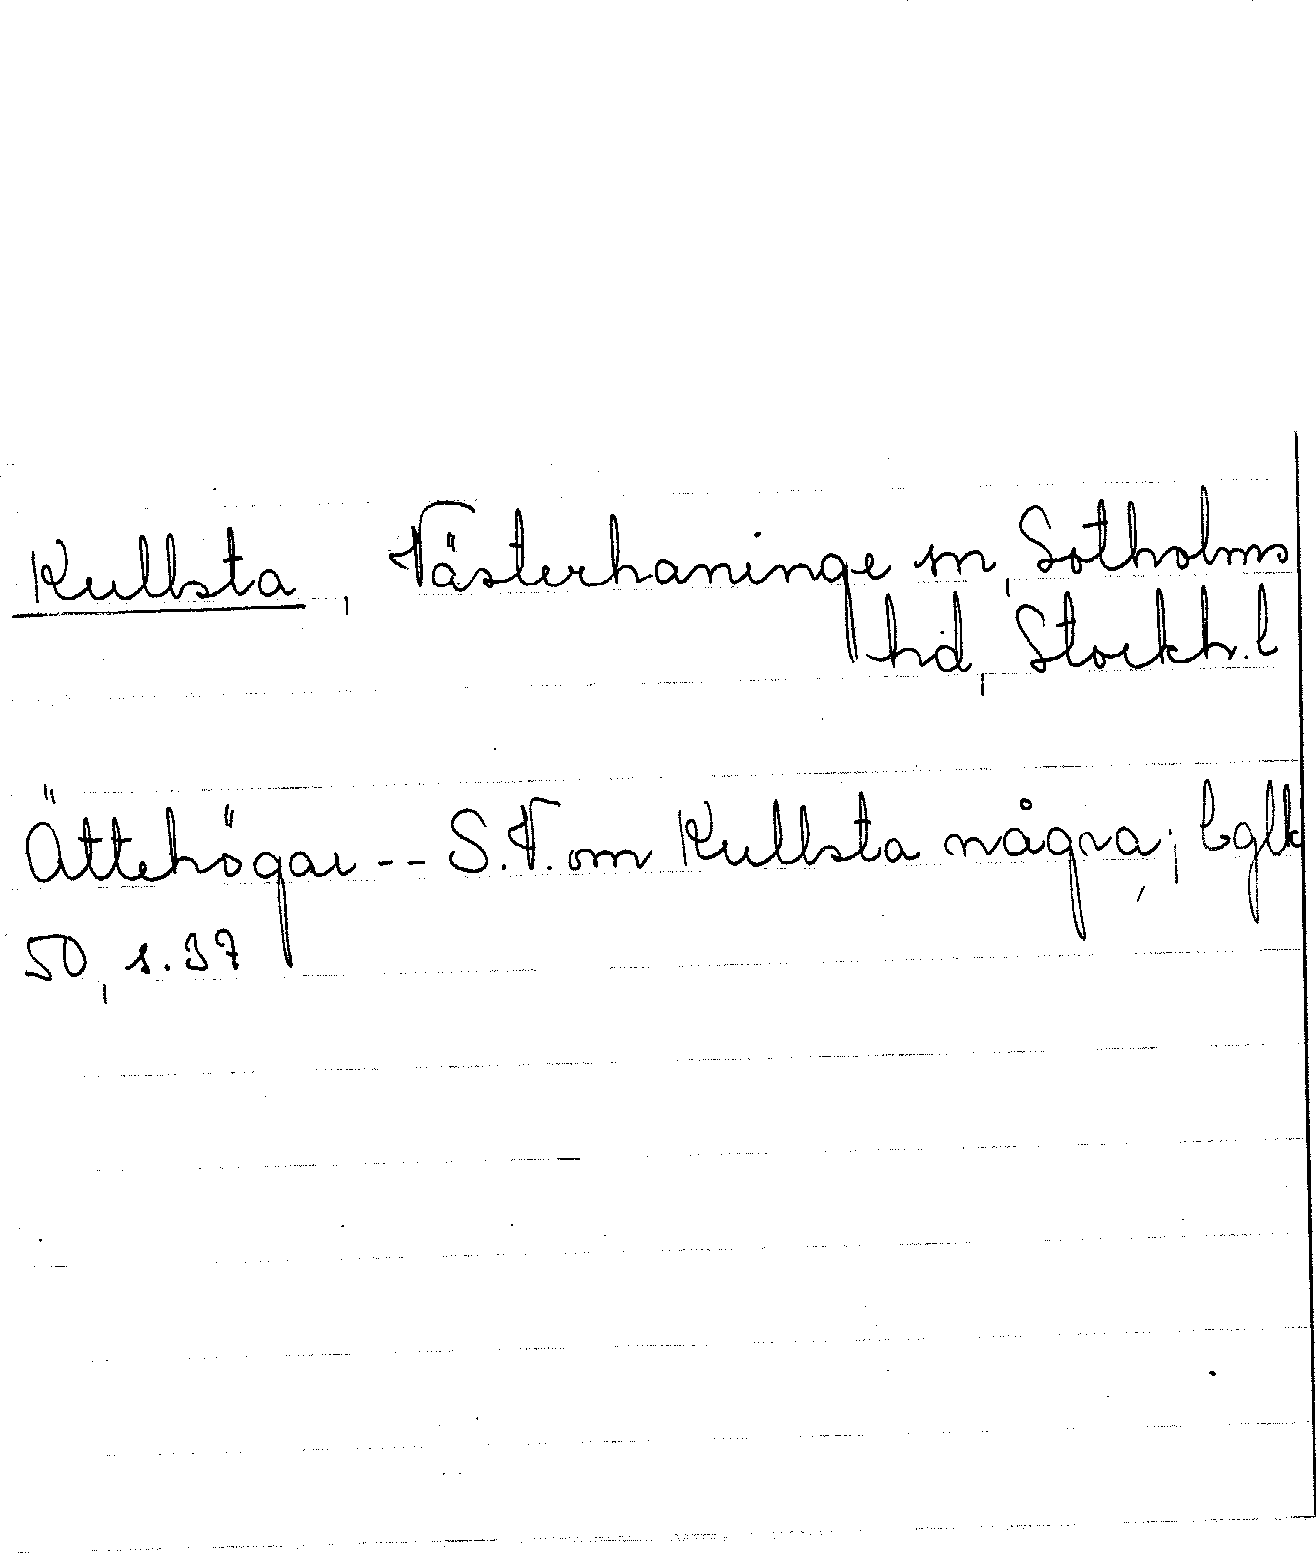 Kullsta, Västerhaninge sn, Sotholms
hd, Stockh. l
Ättehögar -- S.V. om Kullsta några; bglb
50, s. 37